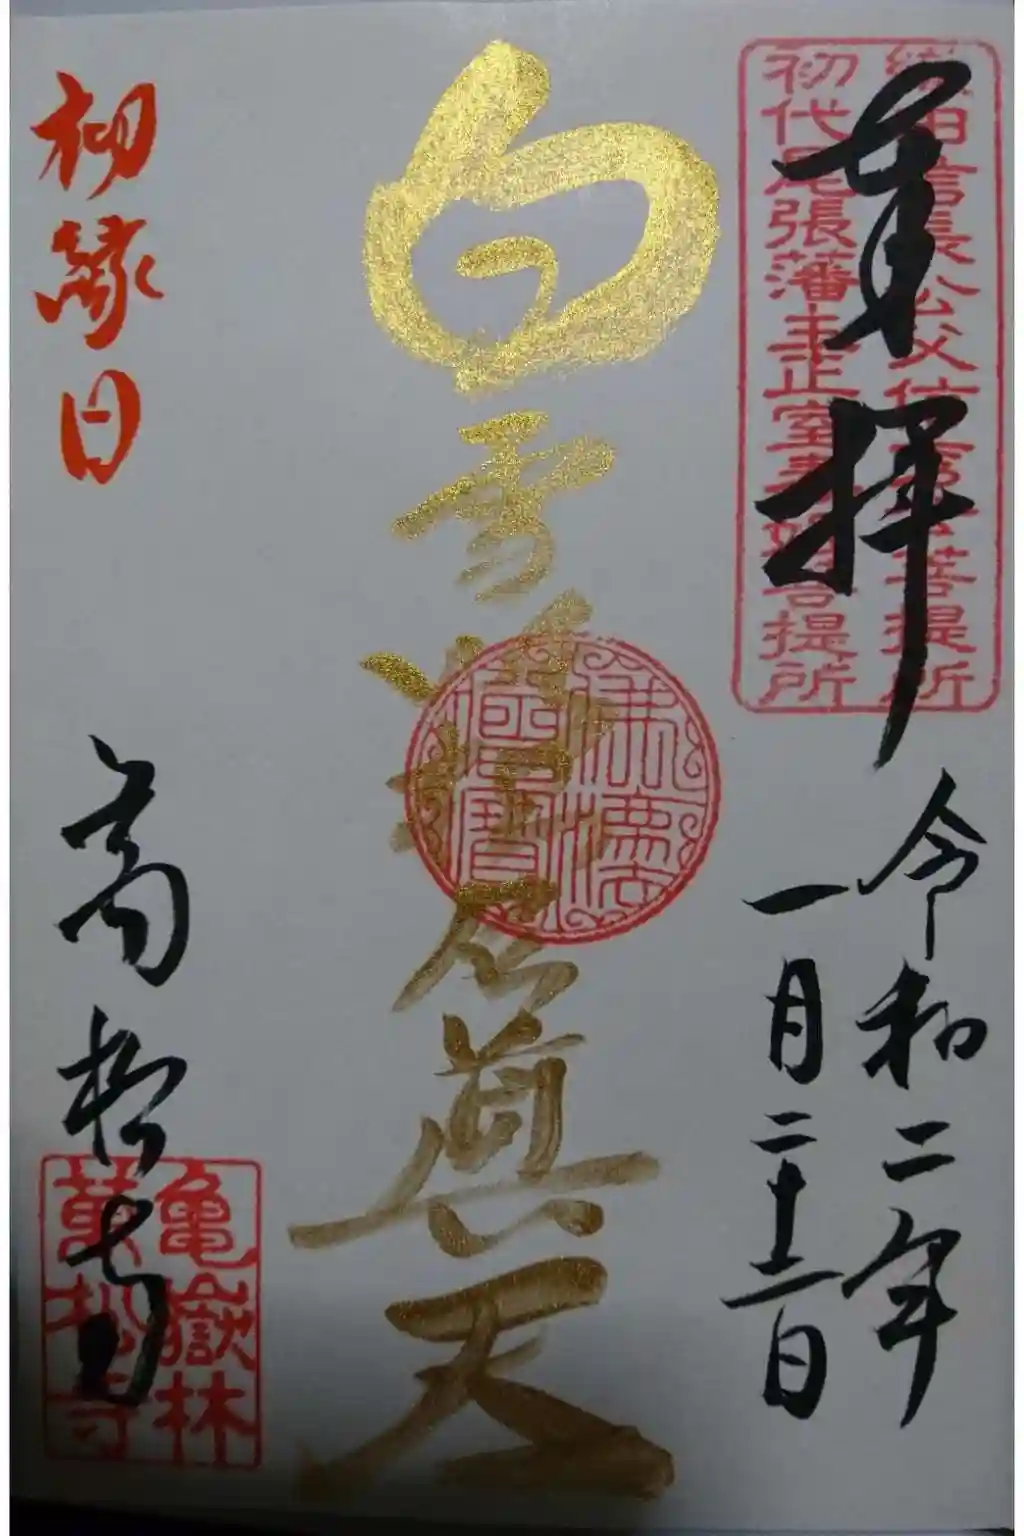 織田信長公父信秀公菩提所
初代尾張藩主正室春姫菩提所
奉拝
令和二年
一月二十二日
白雪吒枳尼眞天
佛法僧寶
初縁日
萬松寺
亀嶽林
萬松寺